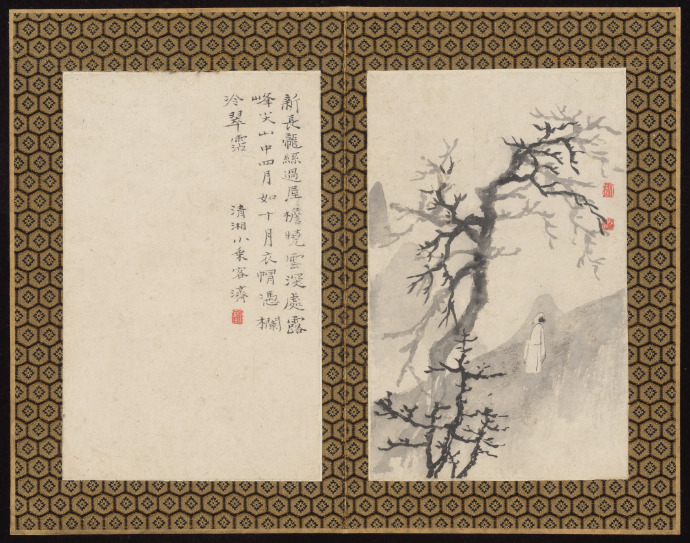 新長過屋檐曉雲深處露
峰尖山中四月如十月衣帽憑欄
冷翠霑
清湘小乘客濟